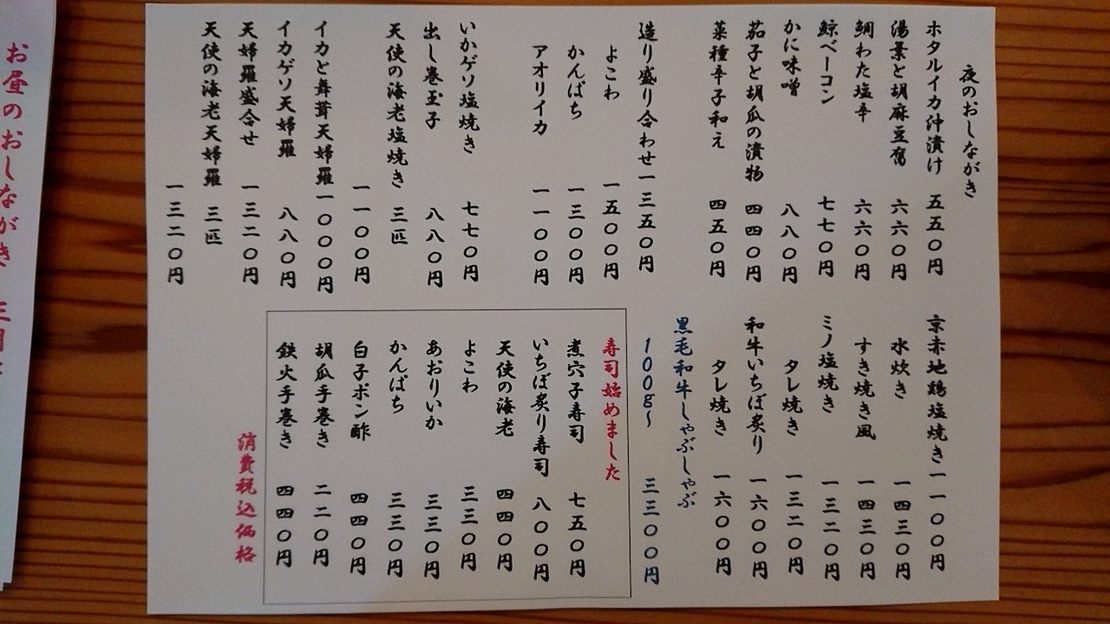 夜のおしながき
ホタルイカ沖漬け 五五〇円
湯葉と胡麻豆腐 六六〇円
鯛わた塩辛 六六〇円
鯨ベーコン 七七〇円
かに味噌 八八〇円
茄子と胡瓜の漬物 四四〇円
菜種辛子和え 四五〇円
造り盛り合わせ 一三五〇円
よこわ 一五〇〇円
かんぱち 一三〇〇円
アオリイカ 一一〇〇円
いかゲソ塩焼き 七七〇円
出し巻玉子 八八〇円
天使の海老塩焼き 三匹
一一〇〇円
イカと舞茸天婦羅 一〇〇〇円
イカゲソ天婦羅 八八〇円
天婦羅盛合せ 一三二〇円
天使の海老天婦羅 三匹
一三二〇円
京赤地鶏塩焼き 一一〇〇円
水炊き 一四三〇円
すき焼き風 一四三〇円
ミノ塩焼き 一三二〇円
タレ焼き 一三二〇円
和牛いちぼ炙り 一六〇〇円
タレ焼き 一六〇〇円
黒毛和牛しゃぶしゃぶ
100g〜 三三〇〇円
寿司始めました
煮穴子寿司 七五〇円
いちぼ炙り寿司 八〇〇円
天使の海老 四四〇円
よこわ 三三〇円
あおりいか 三三〇円
かんぱち 三三〇円
白子ポン酢 四四〇円
胡瓜手巻き 二二〇円
鉄火手巻き 四四〇円
消費税込価格
お昼のおしながき